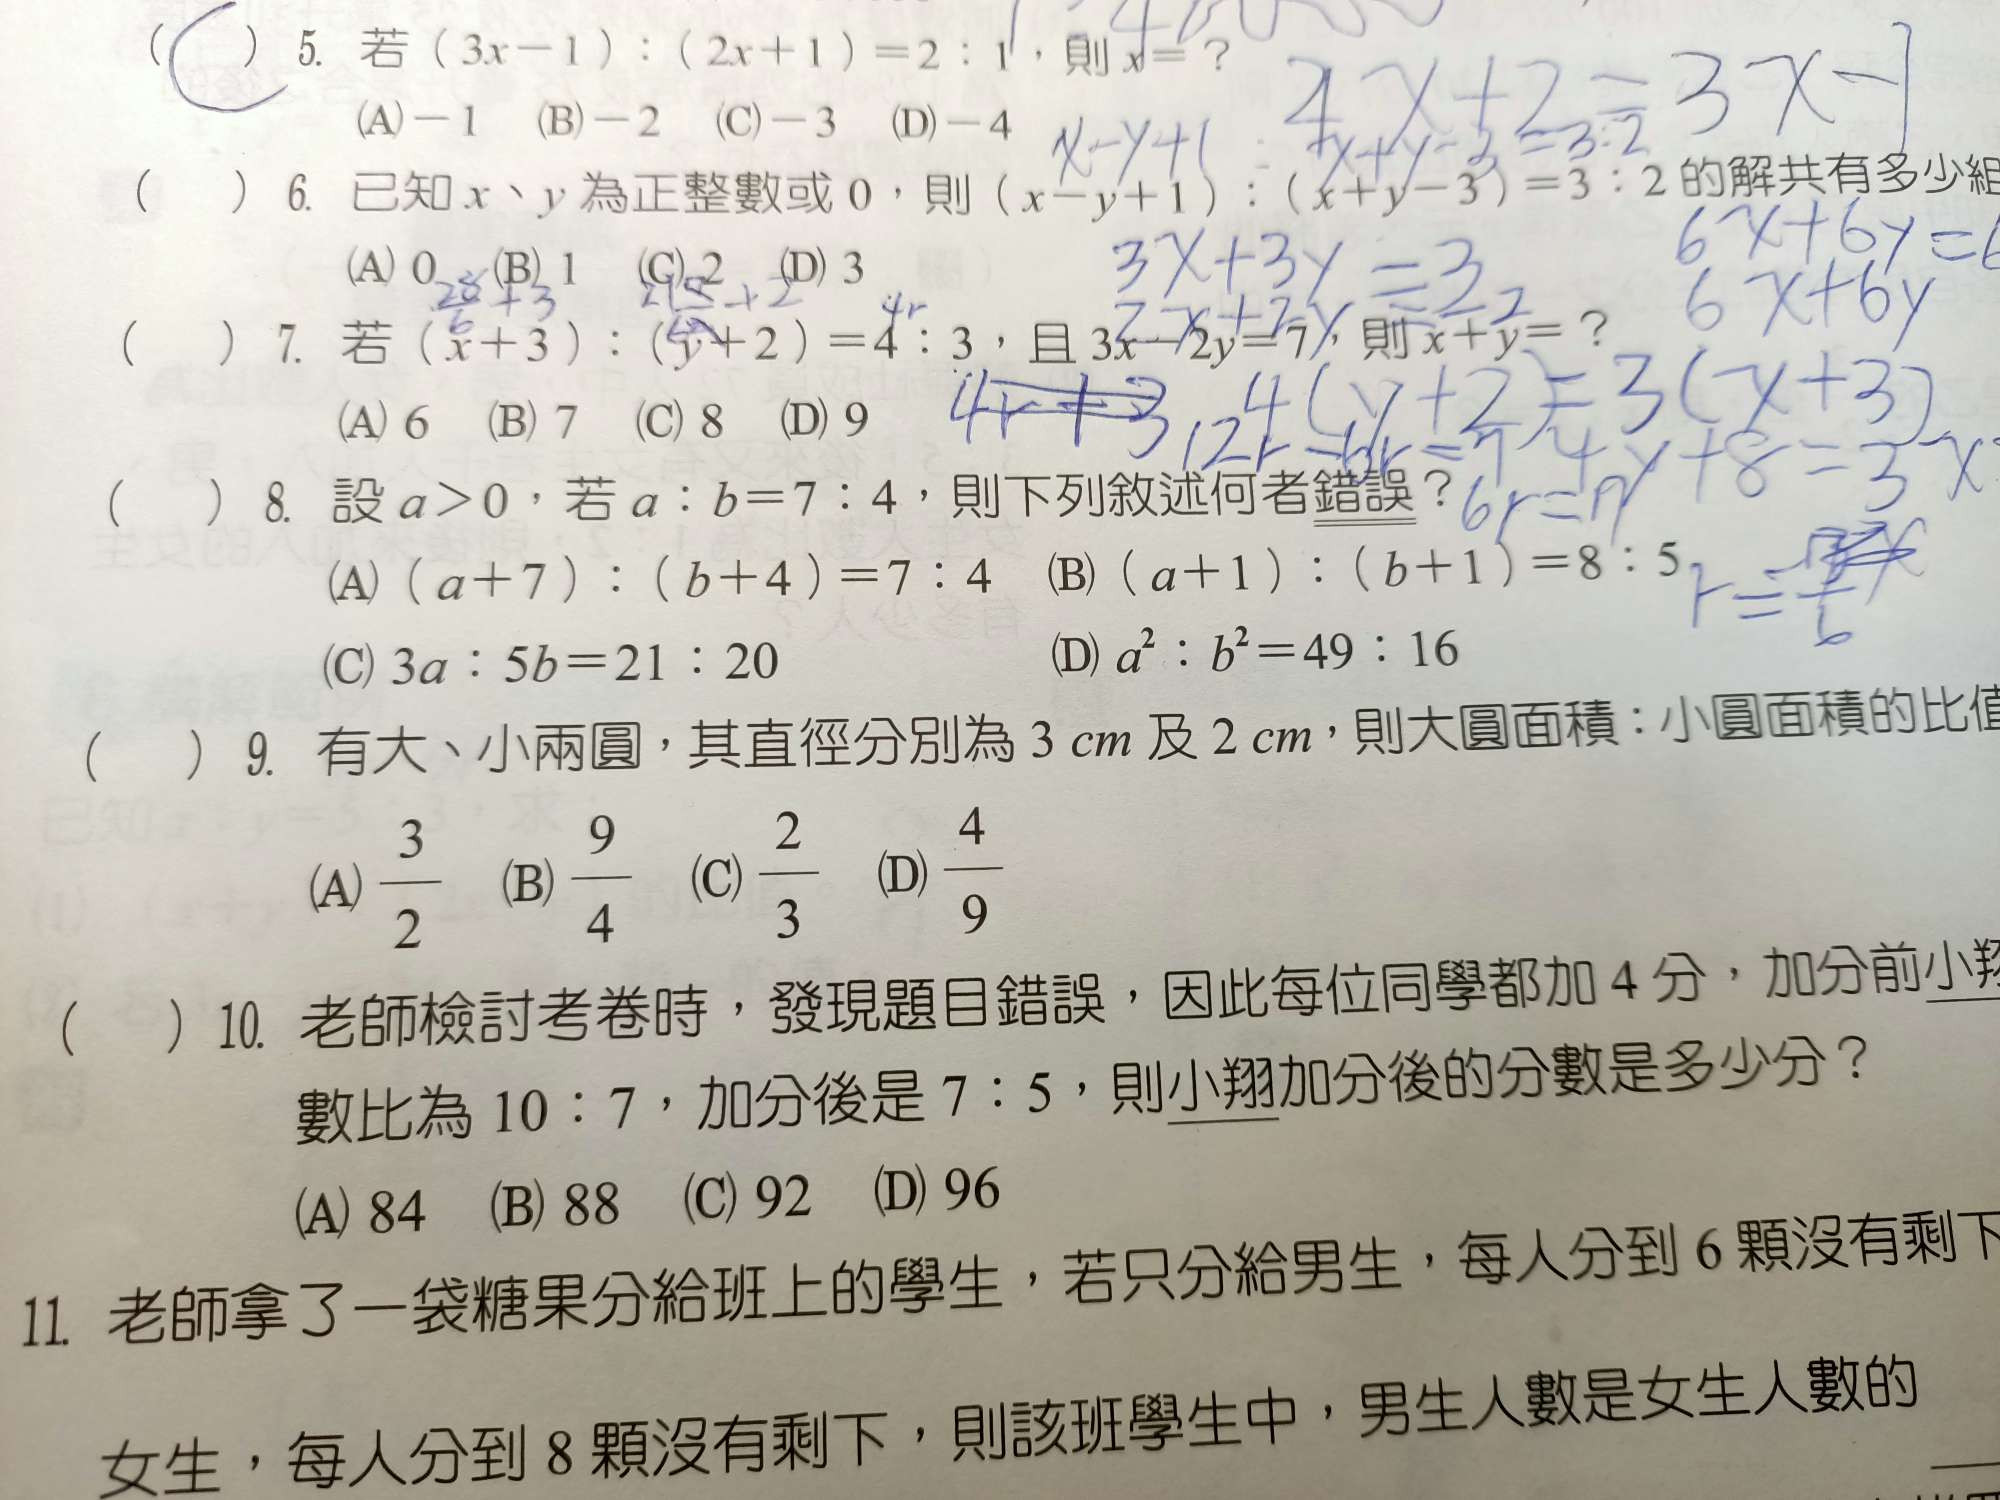 ( C ) 5. 若(3x-1):(2x+1)=2:1,則x=?
4x+2=3x-1
(A)-1 (B)-2 (C)-3 (D)-4
x-y+1 : x+y-3=3:2
( ) 6. 已知x、y為正整數或0,則(x-y+1):(x+y-3)=3:2的解共有多少組
(A) 0 (B) 1 (C) 2 (D) 3
3x+3y=3
6x+6y=6
2x+2y=2
6x+6y
28/6+3
+2
4r
( ) 7. 若(x+3):(y+2)=4:3,且3x-2y=7,則x+y=?
(A) 6 (B) 7 (C) 8 (D) 9
4(y+2)=3(x+3)
12r-6r=7
4y+8=3x
6r=7
r=7/6
( ) 8. 設a>0,若a:b=7:4,則下列敘述何者錯誤?
(A)(a+7):(b+4)=7:4 (B)(a+1):(b+1)=8:5
(C) 3a:5b=21:20 (D) a²:b²=49:16
( ) 9. 有大、小兩圓,其直徑分別為3 cm及2 cm,則大圓面積:小圓面積的比值
(A) 3/2 (B) 9/4 (C) 2/3 (D) 4/9
( ) 10. 老師檢討考卷時,發現題目錯誤,因此每位同學都加4分,加分前小翔
數比為10:7,加分後是7:5,則小翔加分後的分數是多少分?
(A) 84 (B) 88 (C) 92 (D) 96
11. 老師拿了一袋糖果分給班上的學生,若只分給男生,每人分到6顆沒有剩下
女生,每人分到8顆沒有剩下,則該班學生中,男生人數是女生人數的